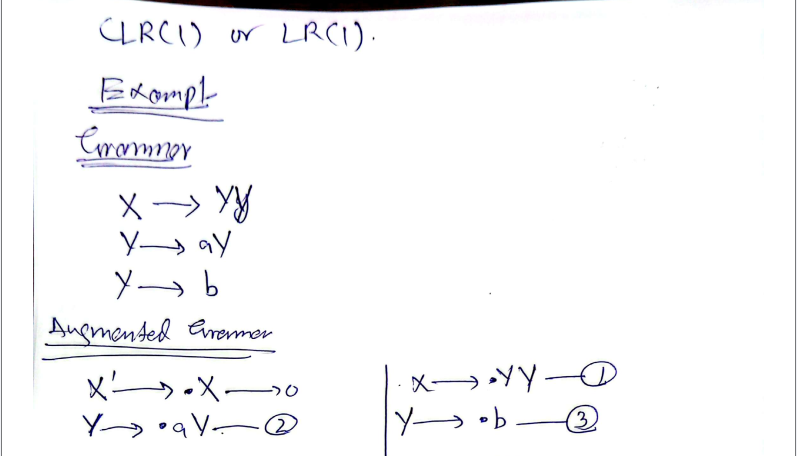 CLR(1) or LR(1).
Exampl
Grammer
X → YY
Y → aY
Y → b
Augmented Grammer
X' → .X → 0
X → .YY — ①
Y → .aY — ②
Y → .b — ③